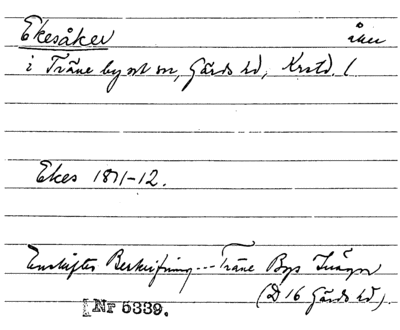 Ekesåker åker
i Träne by o sn, Gärds hd, Krstd. l
Ekes 1811-12.
Enskiftes Beskrifning --- Träne Bys Inägor
(D 16 Gärds hd).
Nr 5339.